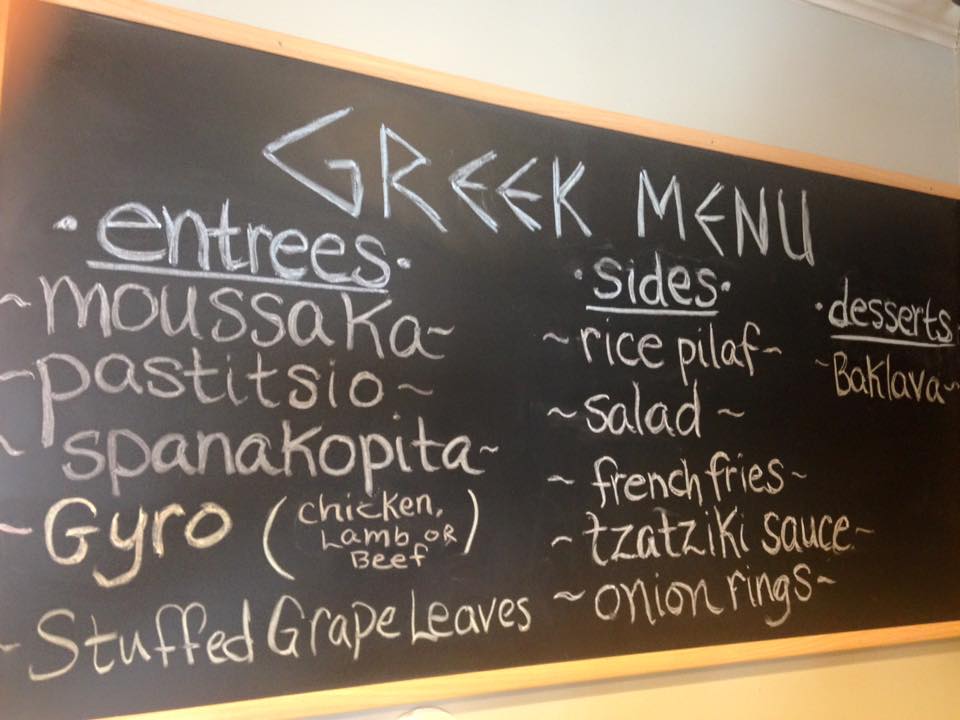 GREEK MENU
· entrees ·
~ moussaka ~
~ pastitsio ~
~ spanakopita ~
~ Gyro (chicken, Lamb OR Beef)
~ Stuffed Grape Leaves
· sides ·
~ rice pilaf ~
~ salad ~
~ french fries ~
~ tzatziki sauce ~
~ onion rings ~
· desserts ·
~ Baklava ~